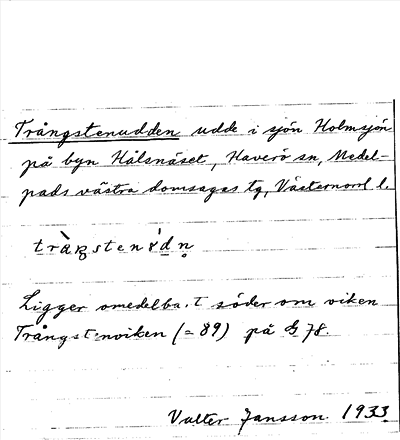 Trångstenudden udde i sjön Holmsjön
på byn Hålsnäset, Haverö sn, Medel-
pads västra domsagas tg, Västernorrl l.
Ligger omedelba.t söder om viken
Trångst.nviken (= 89) på G 78.
Valter Jansson 1933